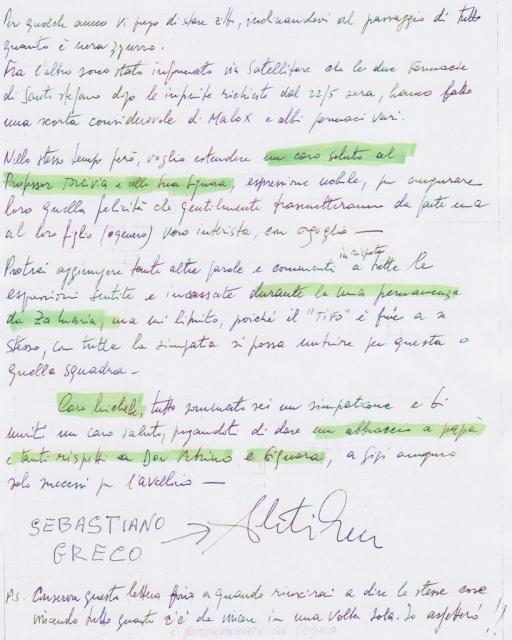 Per qualche anno vi prego di stare zitti, inchinandovi al passaggio di tutto
quanto è nero azzurro.
Fra l'altro sono stato informato via Satellitare che le due farmacie
di Santo Stefano dopo le infinite richieste dal 22/5 sera, hanno fatto
una scorta considerevole di Malox e altri farmaci vari.
Nello stesso tempo però, voglio estendere un caro saluto al
Professor Torlivia e alla sua Signora, espressione nobile, per augurare
loro quella felicità che gentilmente trasmetteranno da parte mia
al loro figlio (ogenero) vero interista, con orgoglio —
Potrei aggiungere tante altre parole e commenti in risposta a tutte le
espressioni sentite e incassate durante la mia permanenza
da Za Maria, ma mi limito, poiché il "TIFO" è fine a se
stesso, con tutta la simpatia si possa nutrire per questa o
quella squadra -
Caro Michele, tutto sommato sei un simpaticone e ti
meriti un caro saluto, pregandoti di dare un abbraccio a papà
e tanti rispetti a Don e Signora, a Gigi auguro
solo successi per l'avellino —
SEBASTIANO
GRECO
Ps. Conserva questa lettera fino a quando riuscirai a dire le stesse cose
vincendo tutto quanto c'è da vincere in una volta sola. Io aspetterò!!
i pavimente in legno